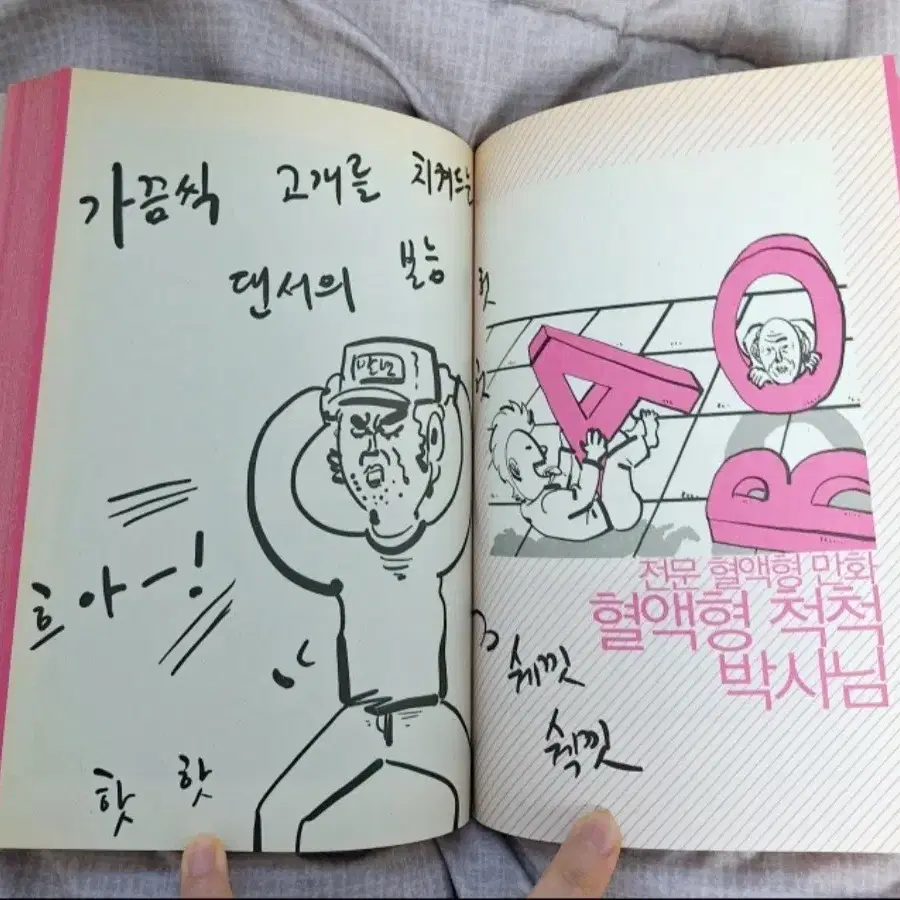 가끔씩 고개를 치켜드는
댄서의 본능
흐아-!
핫 핫
전문 혈액형 만화
혈액형 척척
박사님
쉐낏
쉑낏